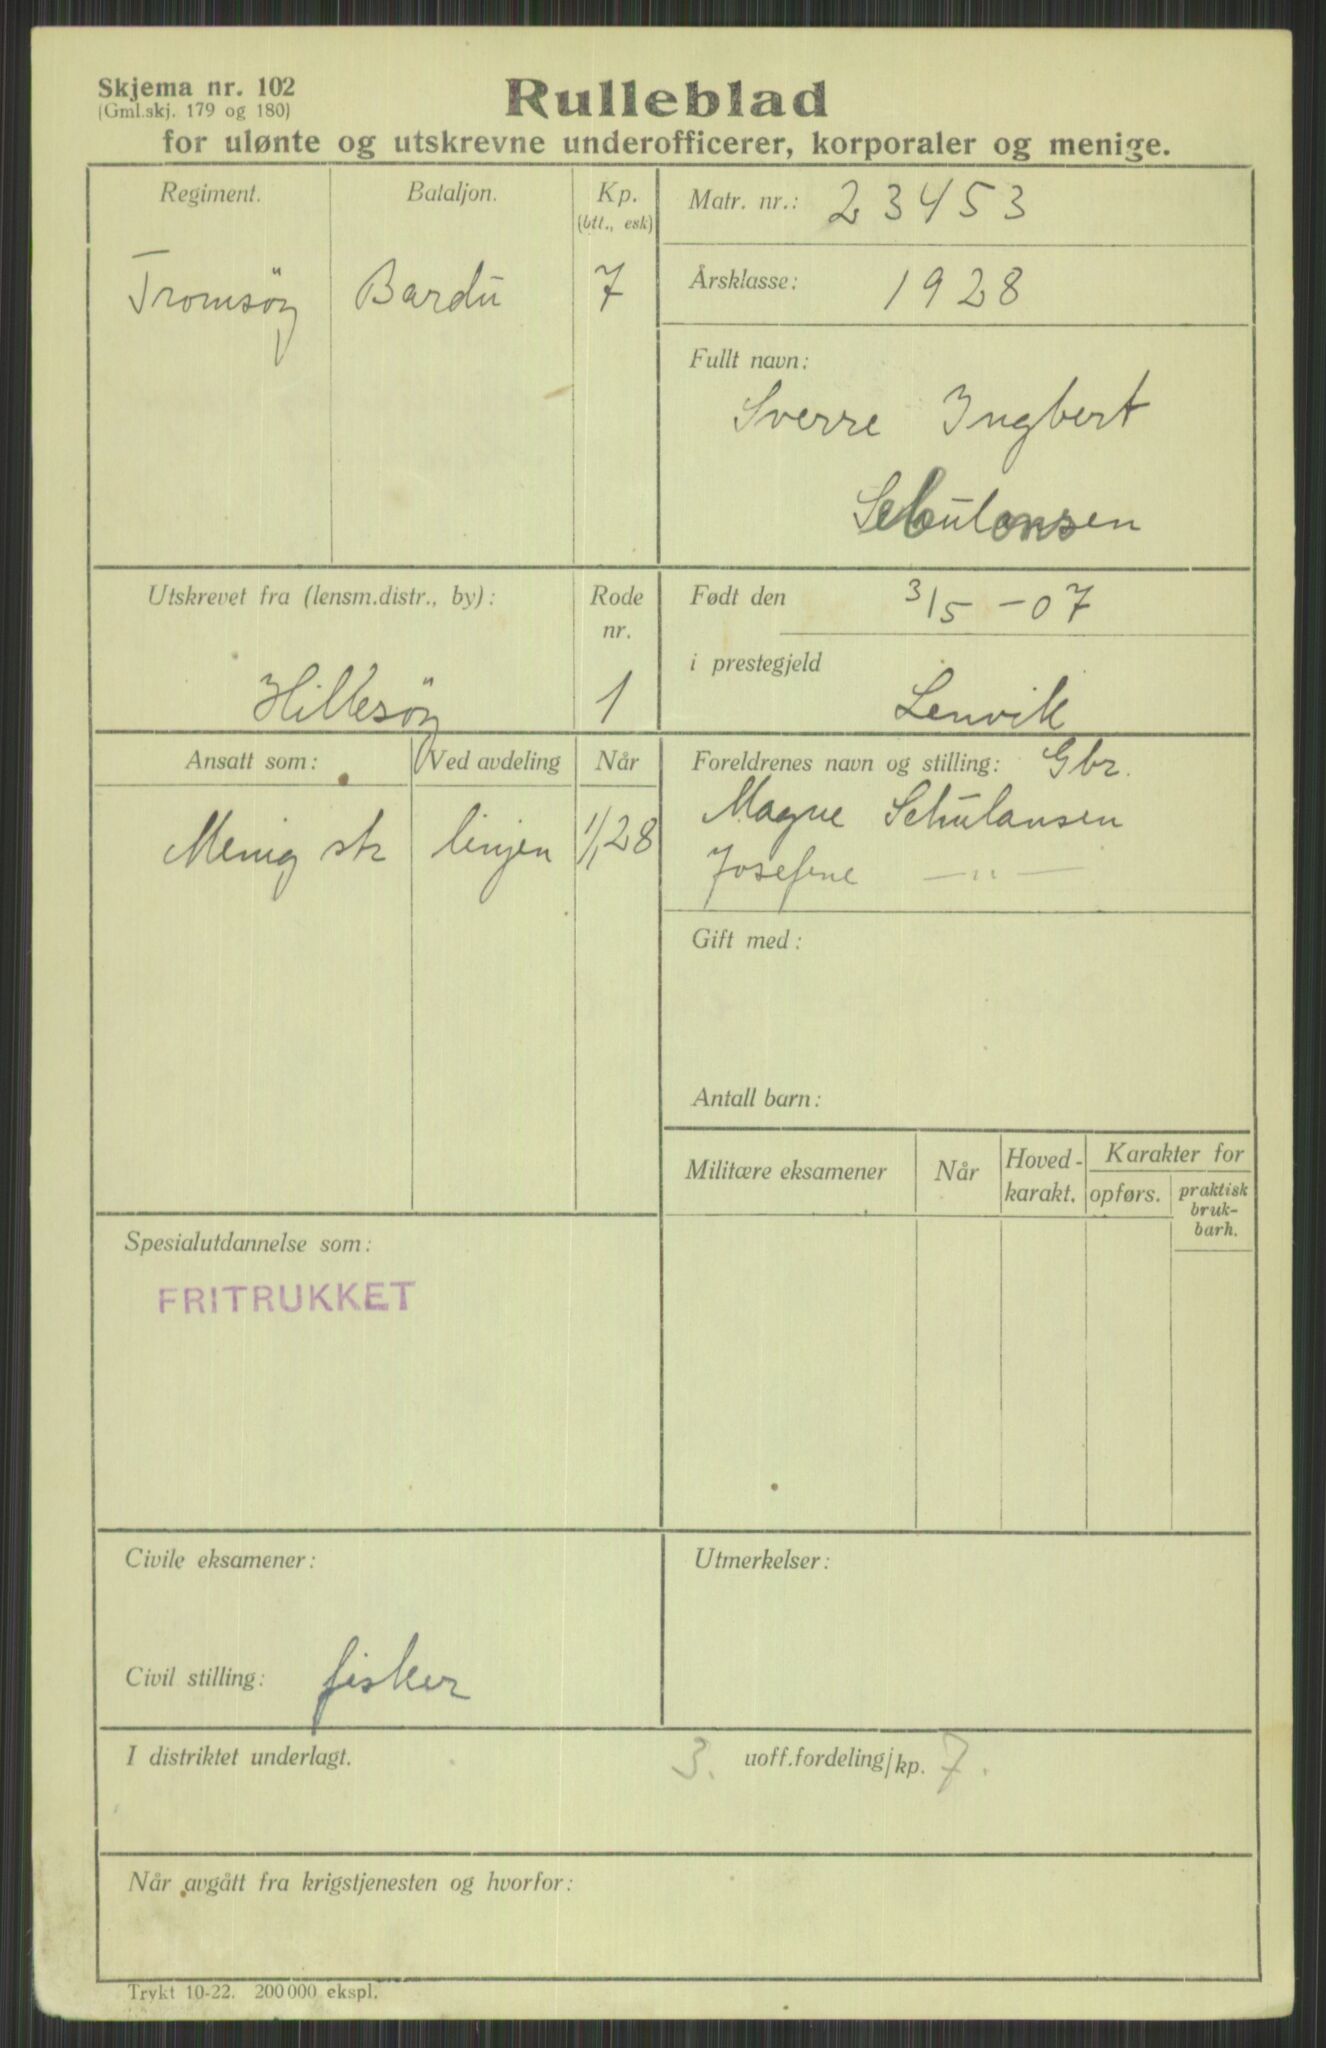 Skjema nr. 102
(Gml.skj. 179 og 180)
Rulleblad
for ulønte og utskrevne underofficerer, korporaler og menige.
Regiment.
Tromsöy
Bataljon.
Bardu
Kp.
(btt., esk)
7
Matr. nr.: 23453
Årsklasse: 1928
Fullt navn:
Sverre Ingbert
Schulansen
Utskrevet fra (lensm.distr., by):
Hillesöy
Rode
nr.
1
Født den 3/5 - 07
i prestegjeld Lenvik
Ansatt som:
Menig str
Ved avdeling
linjen
Når
1/1 28
Foreldrenes navn og stilling: Gbr.
Magne Schulansen
Josefine — " —
Gift med:
Antall barn:
Militære eksamener
Når
Hoved-
karakt.
Karakter for
opførs.
praktisk
bruk-
barh.
Spesialutdannelse som:
FRITRUKKET
Civile eksamener:
Civil stilling: fisker
Utmerkelser:
I distriktet underlagt. 3. uoff.fordeling/kp. 7.
Når avgått fra krigstjenesten og hvorfor:
Trykt 10-22. 200 000 ekspl.